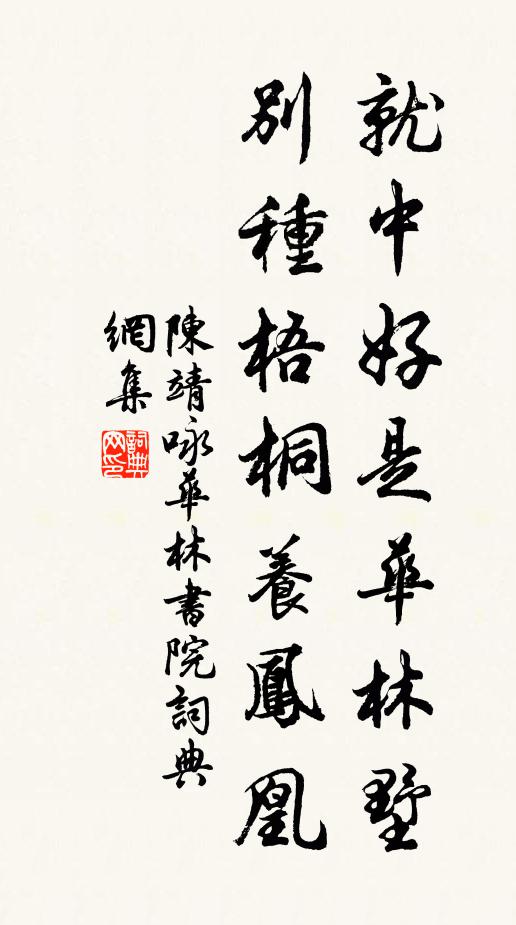 就中好是華林墅
別種梧桐養鳳凰
陳靖咏華林書院詞典
網集
詞典网印